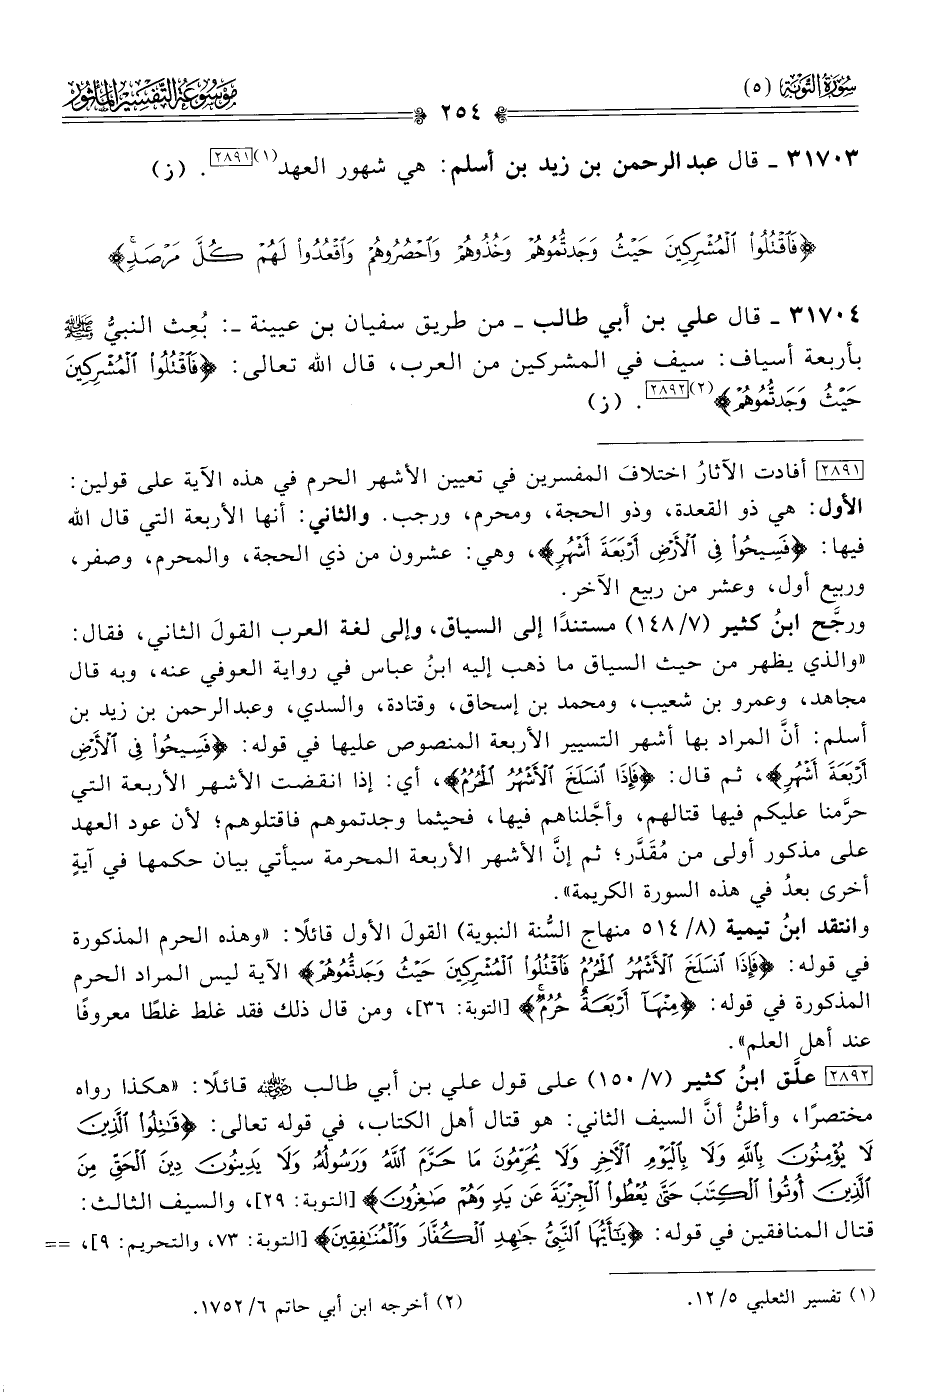 سُورَةُ التَّوْبَةِ (٥)
٢٥٤
مَوْسُوعَةُ التَّفْسِيرِ المَأْثُورِ
٣١٧٠٣ ـ قال عبد الرحمن بن زيد بن أسلم: هي شهور العهد(١)[٢٨٩١]. (ز)
﴿فَٱقْتُلُوا۟ ٱلْمُشْرِكِينَ حَيْثُ وَجَدتُّمُوهُمْ وَخُذُوهُمْ وَٱحْصُرُوهُمْ وَٱقْعُدُوا۟ لَهُمْ كُلَّ مَرْصَدٍۚ﴾
٣١٧٠٤ ـ قال علي بن أبي طالب ـ من طريق سفيان بن عيينة ـ: بُعِث النبيُّ ﷺ
بأربعة أسياف: سيف في المشركين من العرب، قال الله تعالى: ﴿فَٱقْتُلُوا۟ ٱلْمُشْرِكِينَ
حَيْثُ وَجَدتُّمُوهُمْ﴾(٢)[٢٨٩٢]. (ز)
[٢٨٩١] أفادت الآثارُ اختلافَ المفسرين في تعيين الأشهر الحرم في هذه الآية على قولين:
الأول: هي ذو القعدة، وذو الحجة، ومحرم، ورجب. والثاني: أنها الأربعة التي قال الله
فيها: ﴿فَسِيحُوا۟ فِى ٱلْأَرْضِ أَرْبَعَةَ أَشْهُرٍ﴾، وهي: عشرون من ذي الحجة، والمحرم، وصفر،
وربيع أول، وعشر من ربيع الآخر.
ورجَّح ابنُ كثير (٧/ ١٤٨) مستندًا إلى السياق، وإلى لغة العرب القولَ الثاني، فقال:
«والذي يظهر من حيث السياق ما ذهب إليه ابنُ عباس في رواية العوفي عنه، وبه قال
مجاهد، وعمرو بن شعيب، ومحمد بن إسحاق، وقتادة، والسدي، وعبد الرحمن بن زيد بن
أسلم: أنَّ المراد بها أشهر التسيير الأربعة المنصوص عليها في قوله: ﴿فَسِيحُوا۟ فِى ٱلْأَرْضِ
أَرْبَعَةَ أَشْهُرٍ﴾، ثم قال: ﴿فَإِذَا ٱنسَلَخَ ٱلْأَشْهُرُ ٱلْحُرُمُ﴾، أي: إذا انقضت الأشهر الأربعة التي
حرَّمنا عليكم فيها قتالهم، وأجَّلناهم فيها، فحيثما وجدتموهم فاقتلوهم؛ لأن عود العهد
على مذكور أولى من مُقَدَّر؛ ثم إنَّ الأشهر الأربعة المحرمة سيأتي بيان حكمها في آيةٍ
أخرى بعدُ في هذه السورة الكريمة».
وانتقد ابنُ تيمية (٨/ ٥١٤ منهاج السُّنة النبوية) القولَ الأول قائلًا: «وهذه الحرم المذكورة
في قوله: ﴿فَإِذَا ٱنسَلَخَ ٱلْأَشْهُرُ ٱلْحُرُمُ فَٱقْتُلُوا۟ ٱلْمُشْرِكِينَ حَيْثُ وَجَدتُّمُوهُمْ﴾ الآية ليس المراد الحرم
المذكورة في قوله: ﴿مِنْهَآ أَرْبَعَةٌ حُرُمٌۚ﴾ [التوبة: ٣٦]، ومن قال ذلك فقد غلط غلطًا معروفًا
عند أهل العلم».
[٢٨٩٢] علَّق ابنُ كثير (٧/ ١٥٠) على قول علي بن أبي طالب رضي الله عنه قائلًا: «هكذا رواه
مختصرًا، وأظنُّ أنَّ السيف الثاني: هو قتال أهل الكتاب، في قوله تعالى: ﴿قَـٰتِلُوا۟ ٱلَّذِينَ
لَا يُؤْمِنُونَ بِٱللَّهِ وَلَا بِٱلْيَوْمِ ٱلْـَٔاخِرِ وَلَا يُحَرِّمُونَ مَا حَرَّمَ ٱللَّهُ وَرَسُولُهُۥ وَلَا يَدِينُونَ دِينَ ٱلْحَقِّ مِنَ
ٱلَّذِينَ أُوتُوا۟ ٱلْكِتَـٰبَ حَتَّىٰ يُعْطُوا۟ ٱلْجِزْيَةَ عَن يَدٍ وَهُمْ صَـٰغِرُونَ﴾ [التوبة: ٢٩]، والسيف الثالث:
قتال المنافقين في قوله: ﴿يَـٰٓأَيُّهَا ٱلنَّبِىُّ جَـٰهِدِ ٱلْكُفَّارَ وَٱلْمُنَـٰفِقِينَ﴾ [التوبة: ٧٣، والتحريم: ٩]، ==
(١) تفسير الثعلبي ٥/ ١٢.
(٢) أخرجه ابن أبي حاتم ٦/ ١٧٥٢.